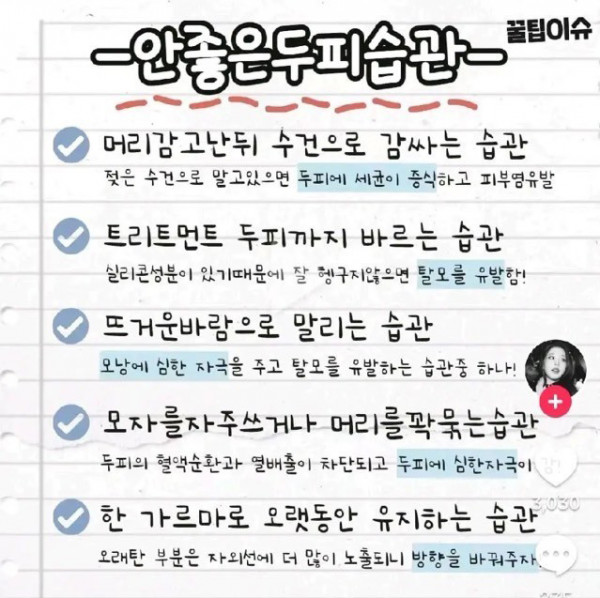 꿀팁이슈
안좋은두피습관
머리감고난뒤 수건으로 감싸는 습관
젖은 수건으로 말고있으면 두피에 세균이 증식하고 피부염유발
트리트먼트 두피까지 바르는 습관
실리콘성분이 있기때문에 잘 헹구지않으면 탈모를 유발함!
뜨거운바람으로 말리는 습관
모낭에 심한 자극을 주고 탈모를 유발하는 습관중 하나!
모자를자주쓰거나 머리를꽉묶는습관
두피의 혈액순환과 열배출이 차단되고 두피에 심한자극이
한 가르마로 오랫동안 유지하는 습관
3,030
오래탄 부분은 자외선에 더 많이 노출되니 방향을 바꿔주자